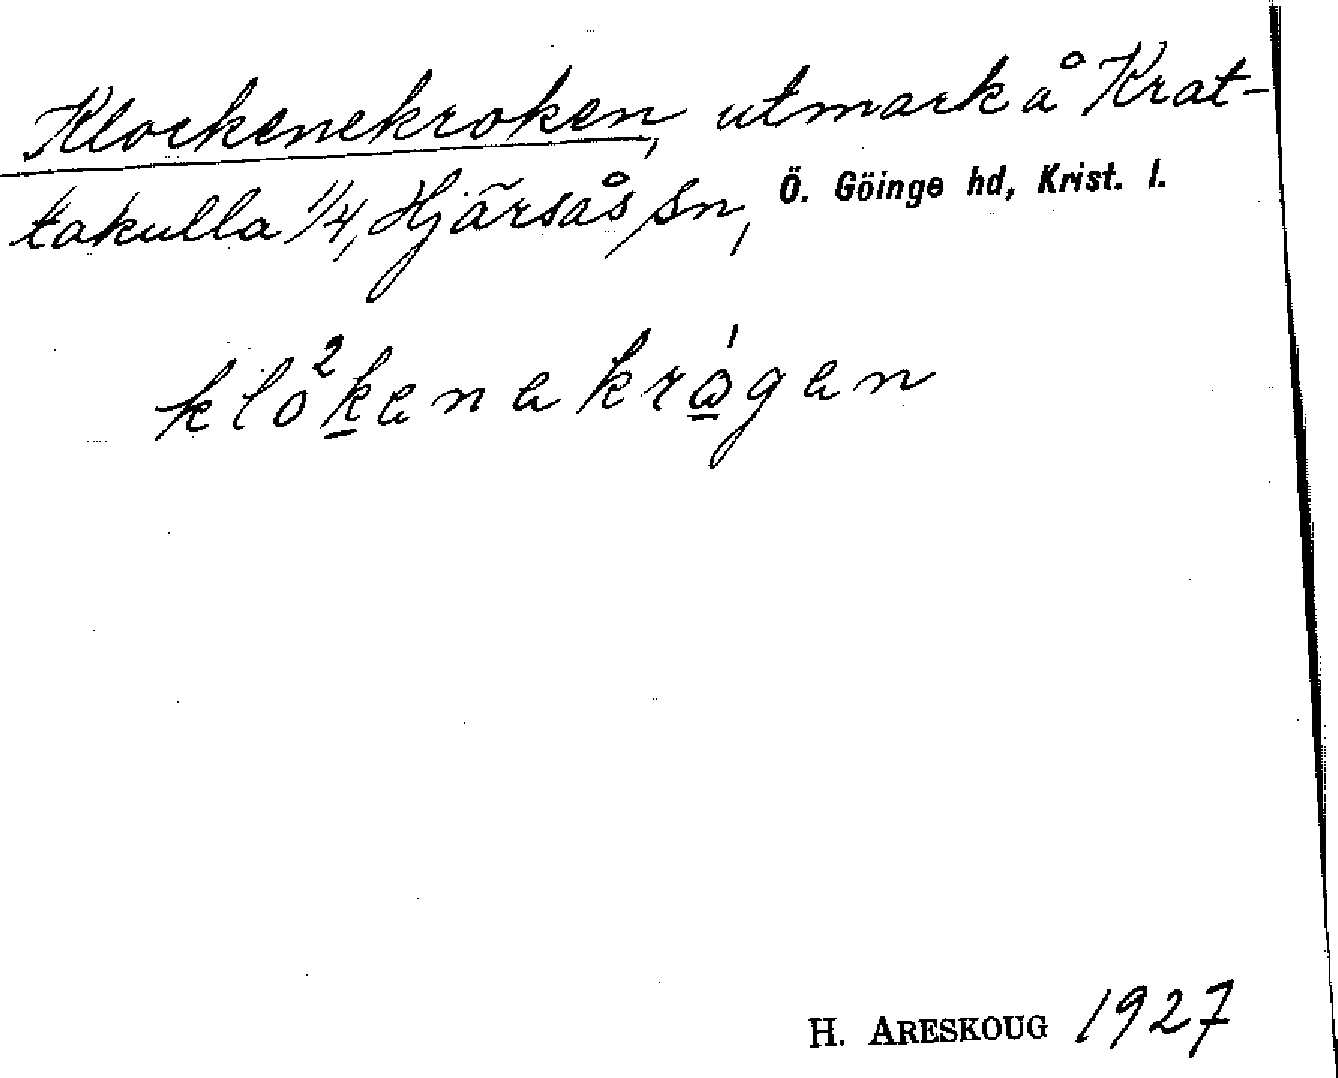 Klockenekroken, utmark å Krat-
takulla 1/4, Hjärsås sn, Ö. Göinge hd, Krist. l.
klo²kenekrágen
H. ARESKOUG 1927